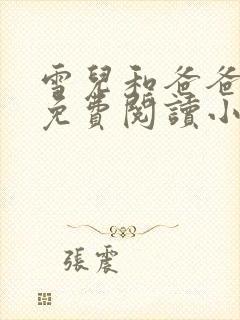 雪兒和爸爸
免費閱讀小
張震